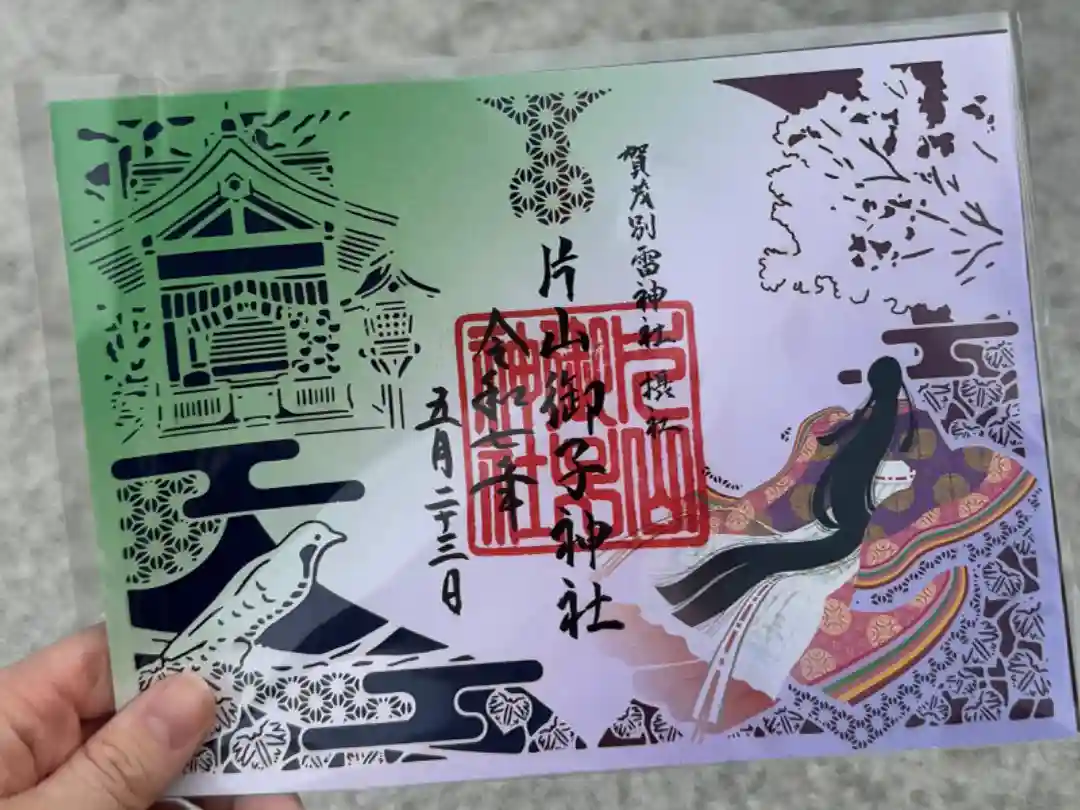 賀茂別雷神社 摂社
片山御子神社
令和七年
五月二十三日
片山御子神社